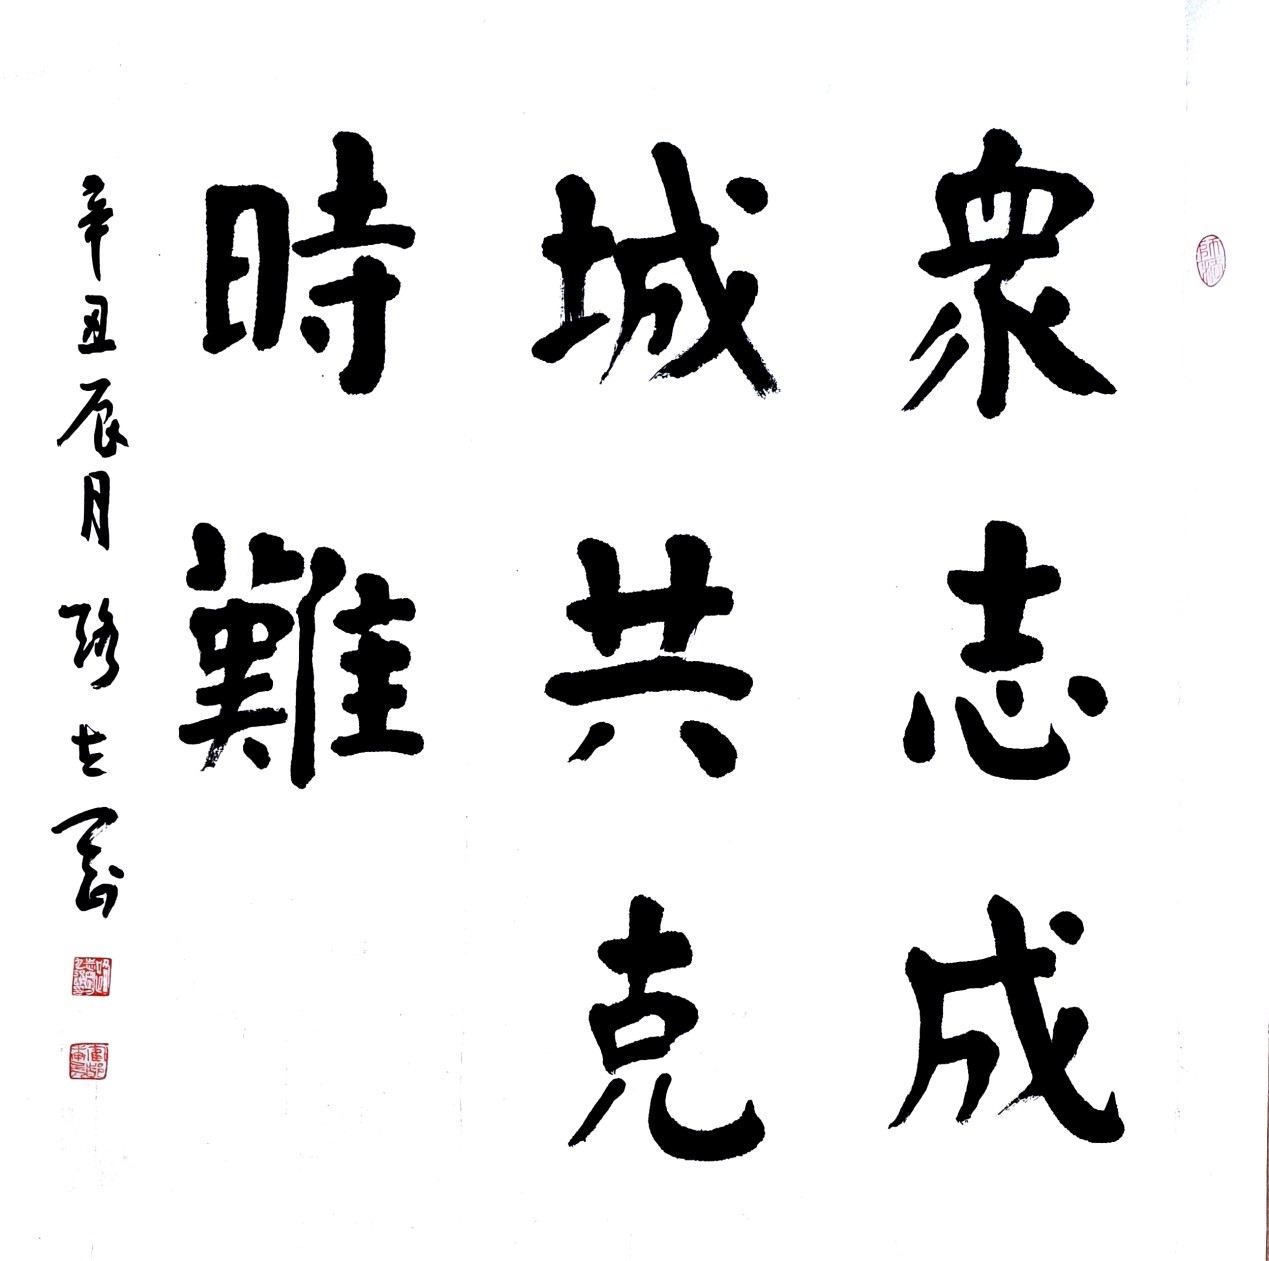 衆志成
城共克
時難
辛丑辰月